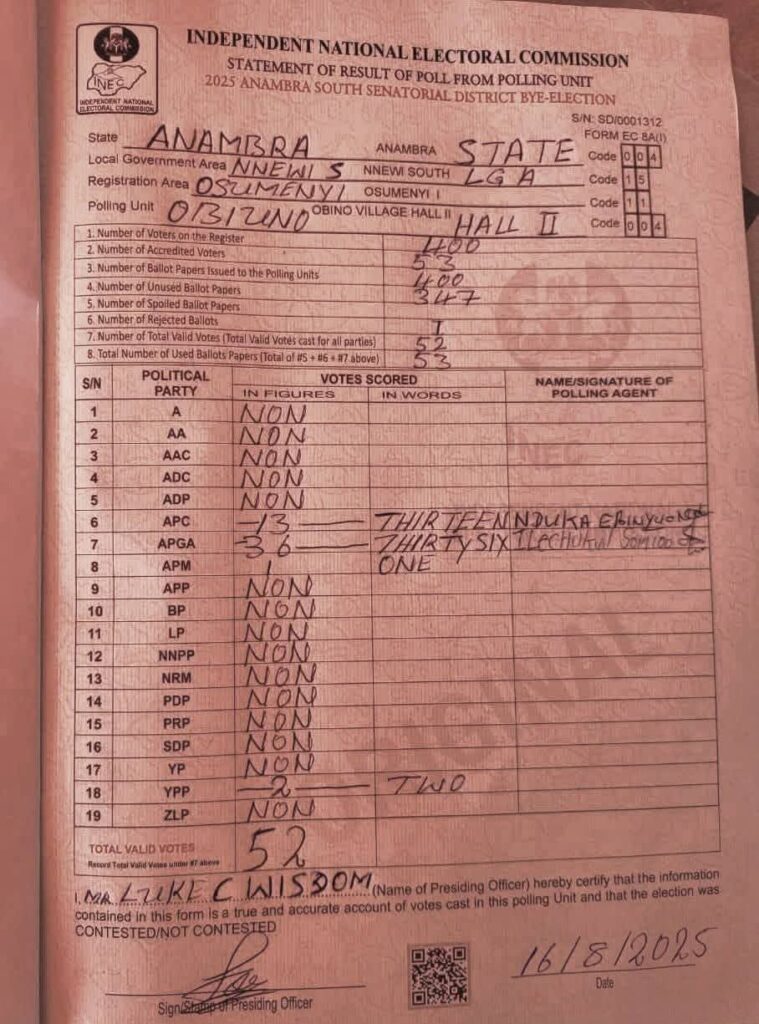 INEC
INDEPENDENT NATIONAL
ELECTORAL COMMISSION
INDEPENDENT NATIONAL ELECTORAL COMMISSION
STATEMENT OF RESULT OF POLL FROM POLLING UNIT
2025 ANAMBRA SOUTH SENATORIAL DISTRICT BYE-ELECTION
S/N: SD/0001312
FORM EC 8A(I)
State ANAMBRA ANAMBRA STATE Code 0 0 4
Local Government Area NNEWI S NNEWI SOUTH LGA Code 1 5
Registration Area OSUMENYI OSUMENYI I Code 1 1
Polling Unit OBIUNO OBINO VILLAGE HALL II HALL II Code 0 0 4
1. Number of Voters on the Register 400
2. Number of Accredited Voters 53
3. Number of Ballot Papers Issued to the Polling Units 400
4. Number of Unused Ballot Papers 347
5. Number of Spoiled Ballot Papers
6. Number of Rejected Ballots 1
7. Number of Total Valid Votes (Total Valid Votes cast for all parties) 52
8. Total Number of Used Ballots Papers (Total of #5 + #6 + #7 above) 53
S/N POLITICAL PARTY VOTES SCORED NAME/SIGNATURE OF POLLING AGENT
IN FIGURES IN WORDS
1 A NON
2 AA NON
3 AAC NON
4 ADC NON
5 ADP NON
6 APC 13 THIRTEEN NDUKA
7 APGA 36 THIRTYSIX
8 APM 1 ONE
9 APP NON
10 BP NON
11 LP NON
12 NNPP NON
13 NRM NON
14 PDP NON
15 PRP NON
16 SDP NON
17 YP NON
18 YPP 2 TWO
19 ZLP NON
TOTAL VALID VOTES 52
Record Total Valid Votes under #7 above
ORIGINAL
I, MR LUKE C WISDOM (Name of Presiding Officer) hereby certify that the information
contained in this form is a true and accurate account of votes cast in this polling Unit and that the election was
CONTESTED/NOT CONTESTED
16/8/2025
Sign/Stamp of Presiding Officer
Date